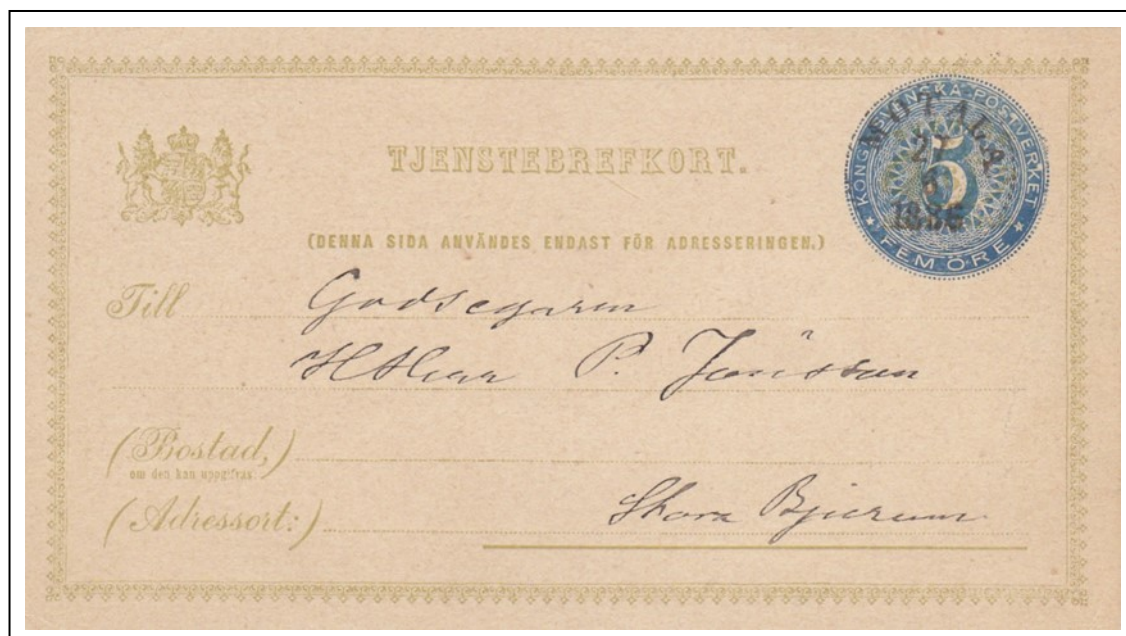 TJENSTEBREFKORT.
KONGL. SVENSKA POSTVERKET
5
FEM ÖRE
MOTALA
1886
(DENNA SIDA ANVÄNDES ENDAST FÖR ADRESSERINGEN.)
Till Godsegaren
P. Jönsson
(Bostad,)
om den kan uppgifvas.
(Adressort:) Stora Bjerum